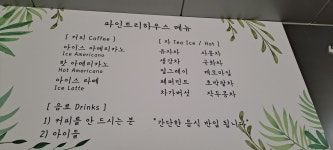 파인트리하우스 메뉴
[ 커피 Coffee ]
아이스 아메리카노
Ice Americano
핫 아메리카노
Hot Americano
아이스 라떼
Ice Latte
[ 음료 Drinks ]
1) 커피를 안 드시는 분
2) 아이들
[ 차 Tea Ice / Hot ]
유자차 사과차
생강차 국화차
얼그레이 캐모마일
페퍼민트 호박팥차
자가버섯
"간단한 음식 반입 됩니다"